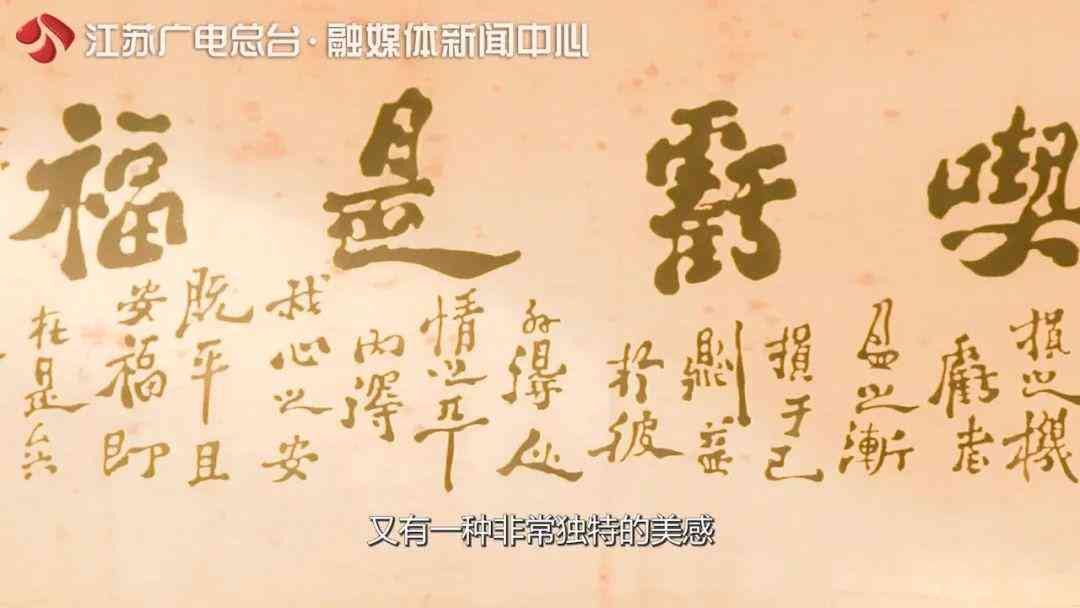 江苏广电总台·融媒体新闻中心
喫虧是福
損之機
虧者
盈之漸
損于己
則益
於彼
外得人
情之平
內得
我心之安
既平且
安福即
在是矣
又有一种非常独特的美感